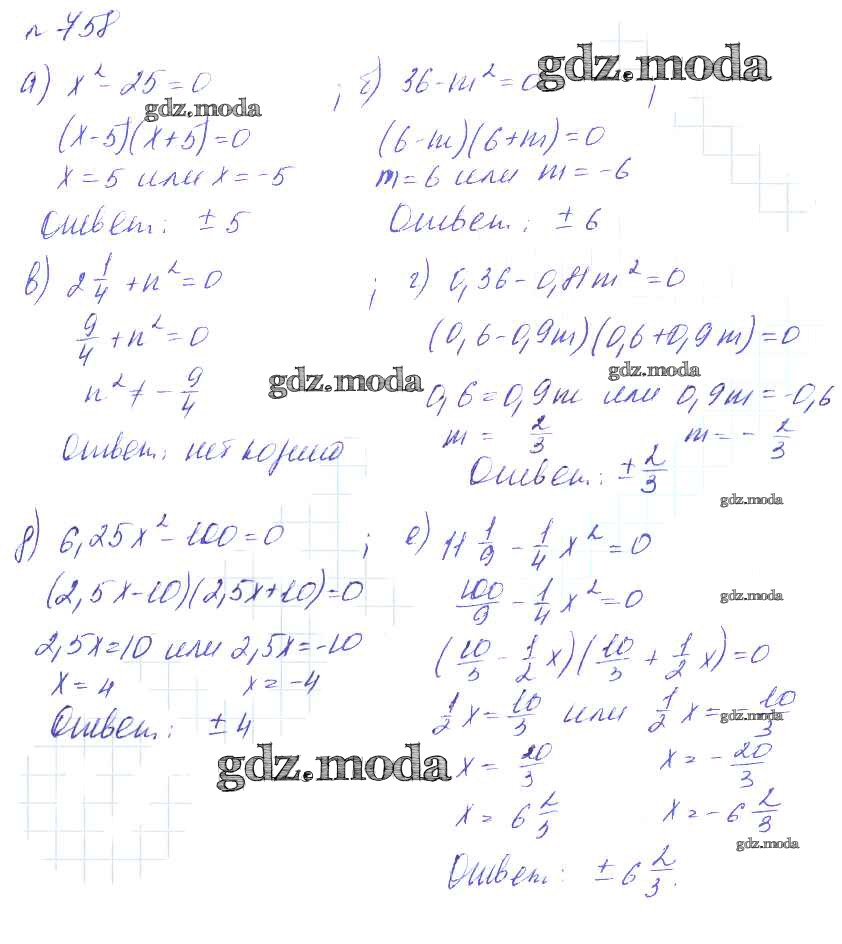 № 758
а) x² - 25 = 0 ;
(x-5)(x+5) = 0
x = 5 или x = -5
Ответ: ± 5
б) 36 - m² = 0 ;
(6-m)(6+m) = 0
m = 6 или m = -6
Ответ: ± 6
в) 2 1/4 + n² = 0 ;
9/4 + n² = 0
n² ≠ - 9/4
Ответ: нет корней
г) 0,36 - 0,81m² = 0
(0,6-0,9m)(0,6+0,9m) = 0
0,6 = 0,9m или 0,9m = -0,6
m = 2/3 m = - 2/3
Ответ: ± 2/3
д) 6,25x² - 100 = 0 ;
(2,5x-10)(2,5x+10) = 0
2,5x = 10 или 2,5x = -10
x = 4 x = -4
Ответ: ± 4
е) 11 1/9 - 1/4 x² = 0
100/9 - 1/4 x² = 0
(10/3 - 1/2 x)(10/3 + 1/2 x) = 0
1/2 x = 10/3 или 1/2 x = - 10/3
x = 20/3 x = - 20/3
x = 6 2/3 x = - 6 2/3
Ответ: ± 6 2/3.
gdz.moda
gdz.moda
gdz.moda
gdz.moda
gdz.moda
gdz.moda
gdz.moda
gdz.moda
gdz.moda